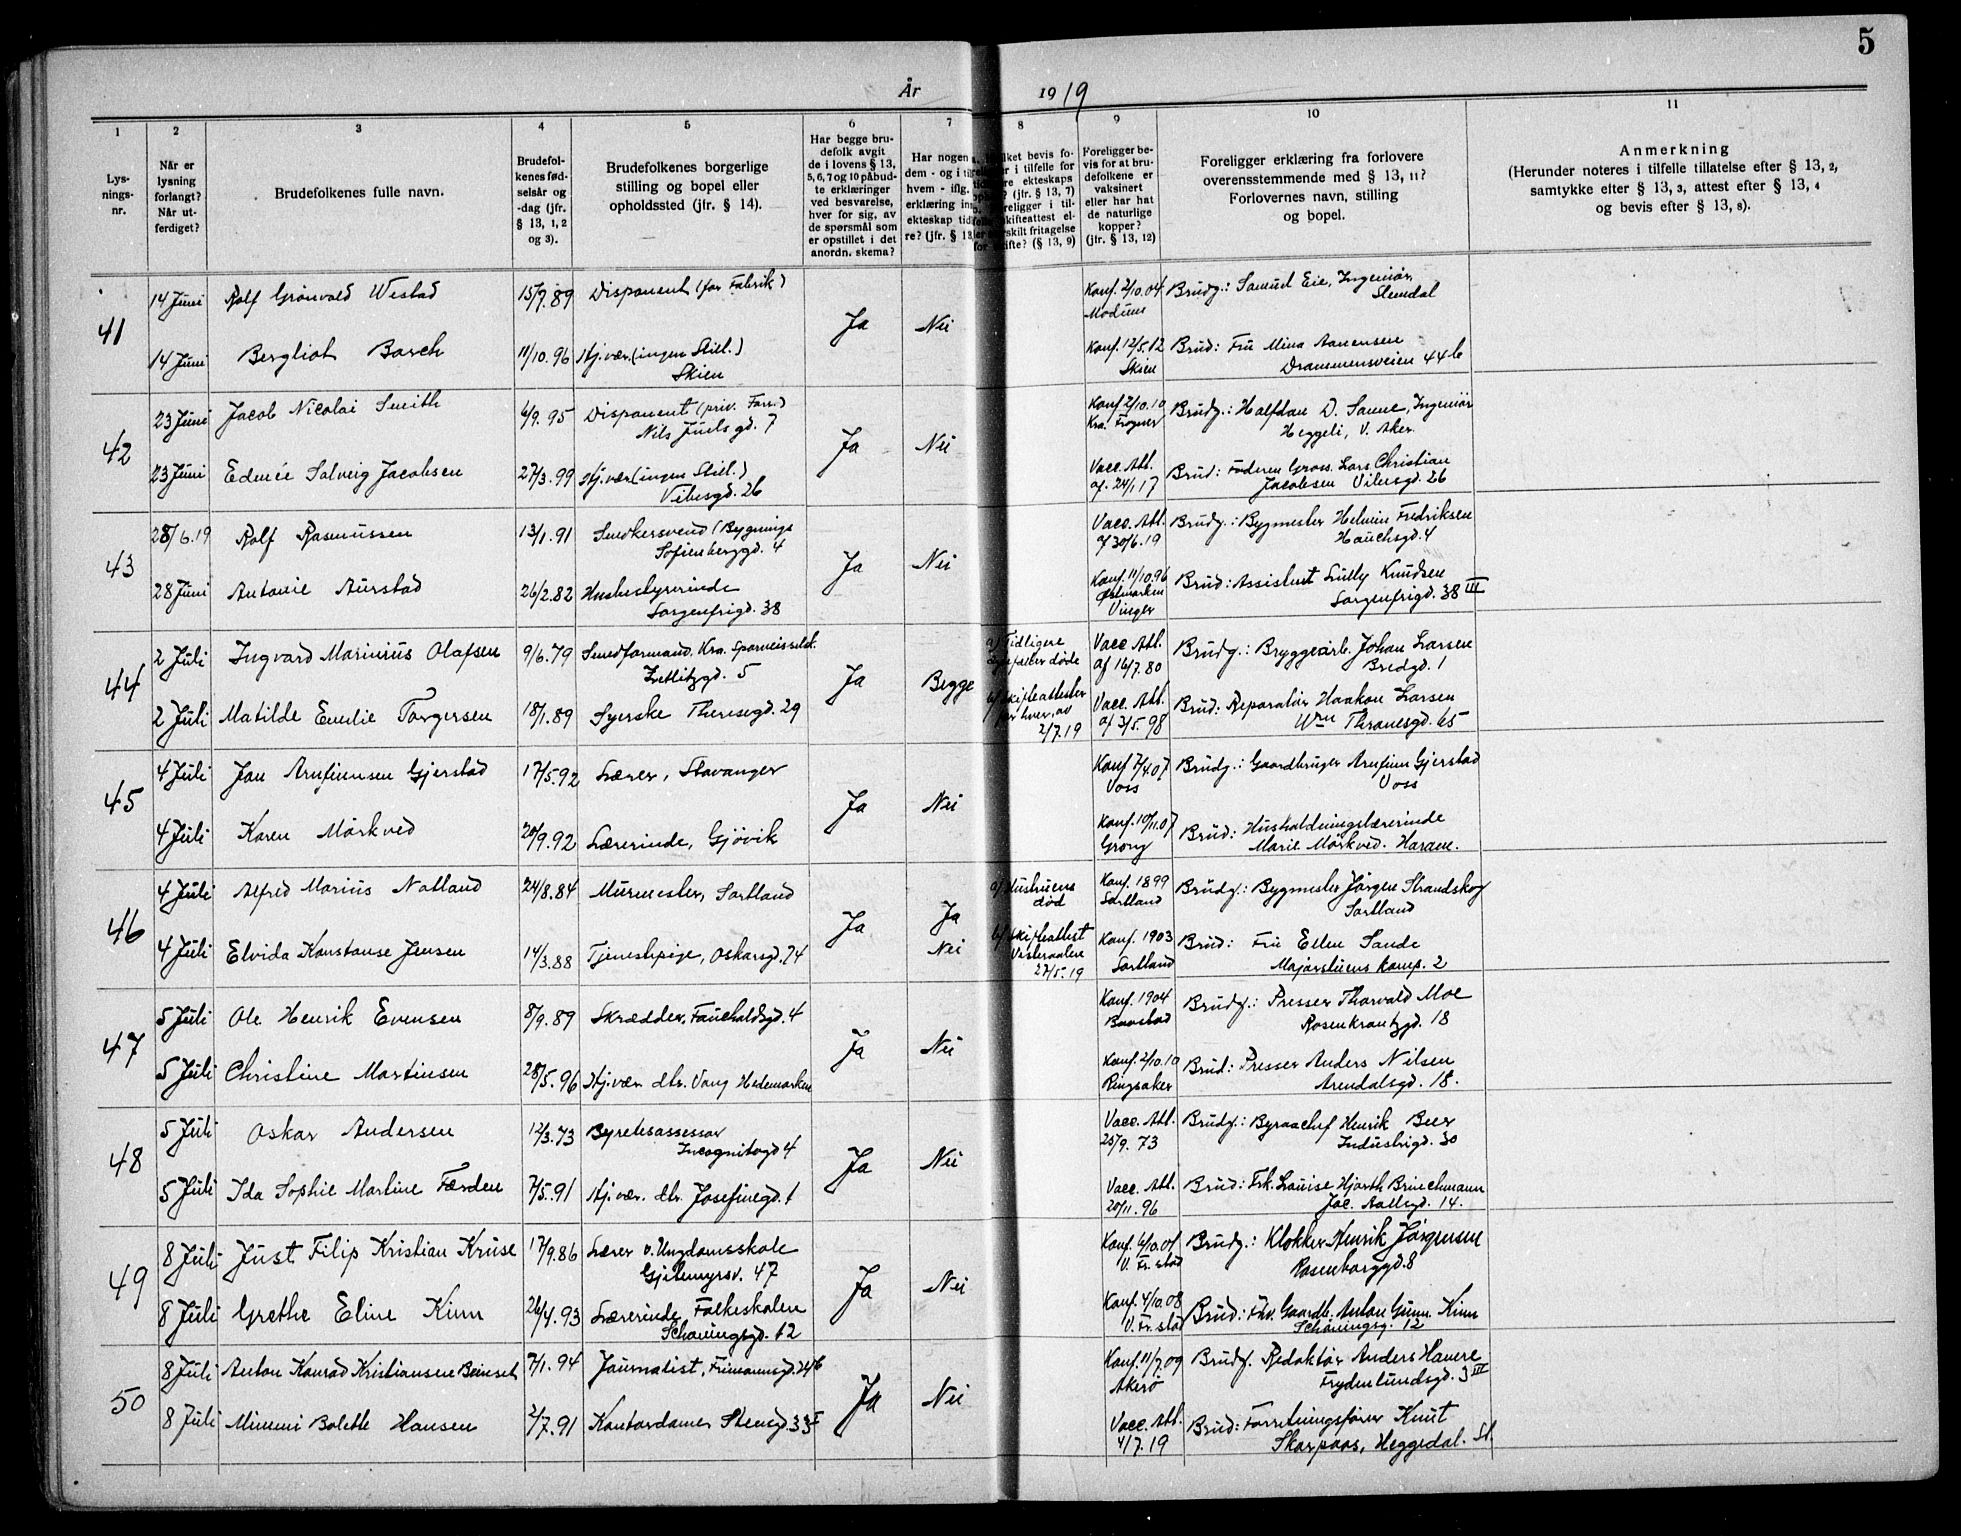 5
År 1919
1 2 3 4 5 6 7 8 9 10 11
Lys-
nings-
nr.
Når er
lysning
forlangt?
Når ut-
ferdiget?
Brudefolkenes fulle navn.
Brudefol-
kenes fød-
selsår og
-dag (jfr.
§ 13, 1, 2
og 3).
Brudefolkenes borgerlige
stilling og bopel eller
opholdssted (jfr. § 14).
Har begge bru-
defolk avgit
de i lovens § 13,
5, 6, 7 og 10 påbud-
te erklæringer
ved besvarelse,
hver for sig, av
de spørsmål som
er opstillet i det
anordn. skema?
Har nogen a
dem - og i
hvem - iflg.
erklæring in
ekteskap tid
re? (jfr. § 13
ket bevis fo-
i tilfelle for
re ekteskaps
? (jfr. § 13, 7)
religger i til-
skifteattest el-
skilt fritagelse
ifte? (§ 13, 9)
Foreligger be-
vis for at bru-
defolkene er
vaksinert
eller har hat
de naturlige
kopper?
(jfr. § 13, 12)
Foreligger erklæring fra forlovere
overensstemmende med § 13, 11?
Forlovernes navn, stilling
og bopel.
Anmerkning
(Herunder noteres i tilfelle tillatelse efter § 13, 2,
samtykke efter § 13, 3, attest efter § 13, 4
og bevis efter § 13, 8).
41
14 Juni Rolf Grönvold Westad 15/7.89 Disponent (for Fabrik) Ja Nei Konf. 2/10.04 Modum Brudg.: Samuel Eie, Ingeniör,
Slemdal
14 Juni Bergliot Borch 11/10.96 Hj.vær. (ingen Still.) Konf. 12/5.12 Brud: Fru Mina Aanensen
Skien Skien Drammensveien 44b
42
23 Juni Jacob Nicolai Smith 6/9.95 Disponent (priv. Forr.) Ja Nei Konf. 2/10.10 Brudg.: Halfdan D. Sanne, Ingeniör
Nils Juels gd. 7 Kra. Frogner Heggeli, V. Aker
23 Juni Edmée Solveig Jacobsen 27/3.99 Hj.vær. (ingen Still.) Vacc. Att. Brud: Faderen Gross. Lars Christian
Vibesgd. 26 af. 24/1 17 Jacobsen Vibesgd. 26
43
28/6.19 Rolf Rasmussen 13/1.91 Snedkersvend (Bygnings Ja Nei Vacc. Att. Brudg.: Bygmester Helmin Fredriksen
Sofienberggd. 4 af 30/6.19 Hauchsgd. 4
28 Juni Antonie Aurstad 26/2.82 Husbestyrerinde Konf. 11/10.96 Brud: Assistent Lully Knudsen
Sorgenfrigd. 38 Østmarken Sorgenfrigd. 38 III
Vinger
44
2 Juli Ingvard Marinius Olafsen 9/6.79 Smedformand. Kra. Sporveisselsk. Ja Begge a) Tidligere Vacc. Att. Brudg.: Bryggeiarb. Johan Larsen
5 døde af 16/7.80 Bredgd. 1
2 Juli Matilde Emilie Torgersen 18/1.89 Syerske Theresegd. 29 b) Skifteattester Vacc. Att. Brud: Reparatör Haakon Larsen
for hver, av af 3/5.98 Wm Thranesgd. 65
2/7.19
45
4 Juli Jon Arnfinnsen Gjerstad 17/5.92 Lærer, Stavanger Ja Nei Konf 7/4.07 Brudg.: Gaardbruger Arnfinn Gjerstad
Voss Voss
4 Juli Karen Mörkved 20/9.92 Lærerinde, Gjövik Konf. 10/11.07 Brud: Husholdningslærerinde
Grong Marie Mörkved. Haram.
46
4 Juli Alfred Marius Natland 24/8.84 Murmester, Sortland Ja Ja a) Hustruens Konf. 1899 Brudg.: Bygmester Jörgen Strandskog
død Sortland Sortland
4 Juli Elvida Konstanse Jensen 14/3.88 Tjenestpige, Oskarsgd. 74 Nei b) Skifteattest Konf. 1903 Brud: Fru Ellen Sande
Vesteraalen Sortland Majorstuens Komp. 2
27/5.19
47
5 Juli Ole Henrik Evensen 8/9.89 Skrædder, Fauchaldsgd. 4 Ja Nei Konf. 1904 Brudg.: Presser Thorvald Moe
Rosenkrantzgd. 18
5 Juli Christine Martinsen 28/5.96 Hj.vær. dtr. Vang Hedemarken Konf. 2/10.10 Brud: Presser Anders Nilsen
Ringsaker Arendalsgd. 18.
48
5 Juli Oskar Andersen 12/3.73 Byretsassessor Ja Nei Vacc. Att. Brudg.: Byraachef Henrik Beer
Incognitogd 4 25/9.73 Industrigd. 30
5 Juli Ida Sophie Martine Færden 7/5.91 Hj.vær. dtr. Josefinegd. 1 Vacc. Att. Brud: Frk. Louise Hjorth Brinchmann
20/11.96 Jac. Aallsgd. 14.
49
8 Juli Just Filip Kristian Kruse 17/9.86 Lærer v. Ungdomsskole Ja Nei Konf. 6/10.01 Brudg.: Klokker Henrik Jörgensen
Gjetemyrsv. 47 V. Fr.stad Rosenborggd. 8
8 Juli Grethe Eline Kinn 26/4.93 Lærerinde Folkeskolen Konf. 4/10.08 Brud: Fhv. Gaardb. Anton Gunn. Kinn
Schöningsgd. 12 V. Fr.stad Schöningsg. 12
50
8 Juli Anton Konrad Kristiansen Beinset 7/1.94 Journalist, Frimannsgd. 24b Ja Nei Konf. 11/7.09 Brudg. Redaktör Anders Havre
Akerö Frydenlundsgd. 3 III
8 Juli Mimmi Bolette Hansen 2/7.91 Kontordame, Stensgd. 33 I Vacc. Att. Brud: Forretningsförer Knut
4/7.19 Skarpaas, Heggedal. St.